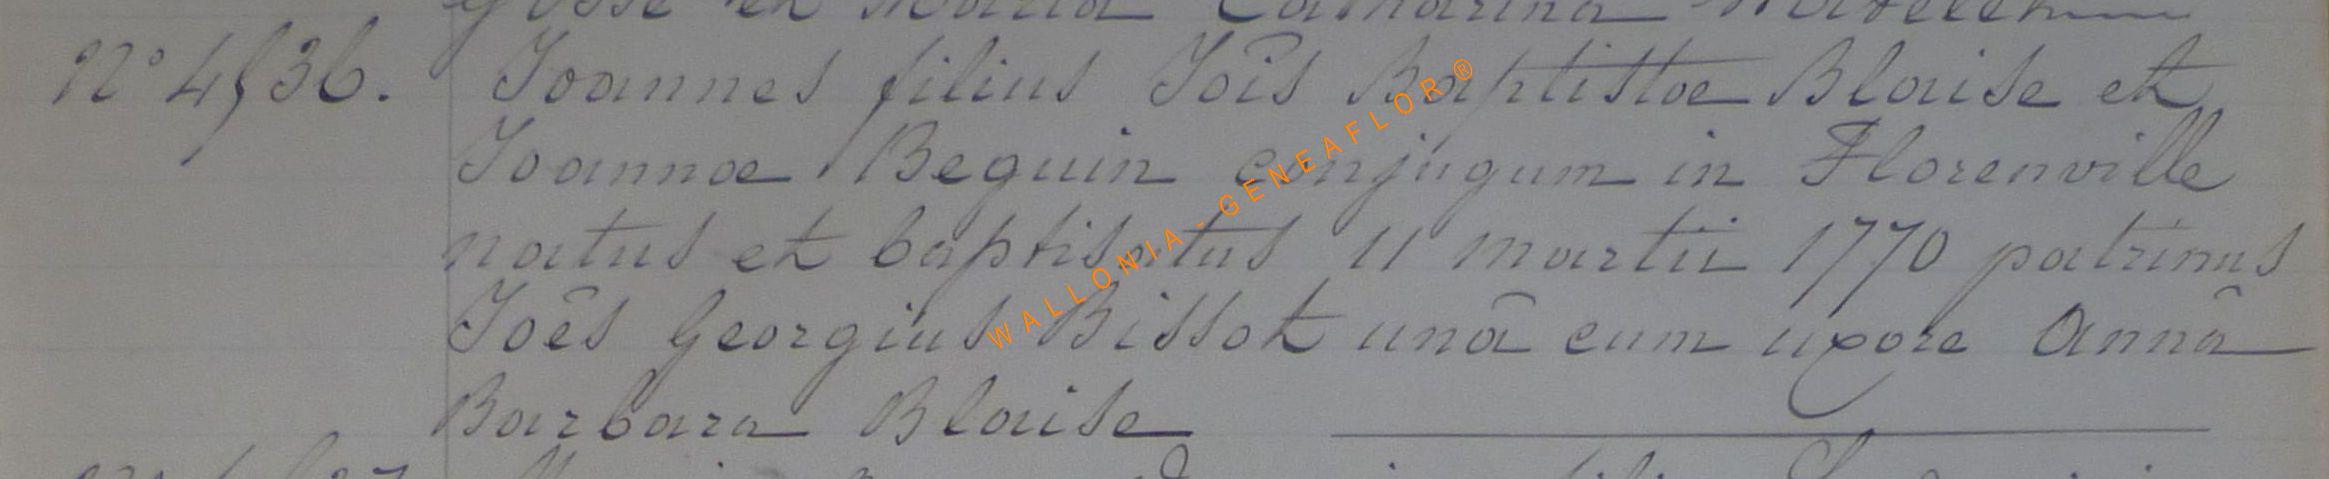 et Maria Catharina
N° 4536. Joannes filius Joîs Baptistae Blaise et
Joannae Beguin conjugum in Florenville
natus et baptisatus 11 martii 1770 patrinus
Joês Georgius Bissot unâ cum uxore Annâ
Barbara Blaise
WALLONIA-GENEAFLOR®